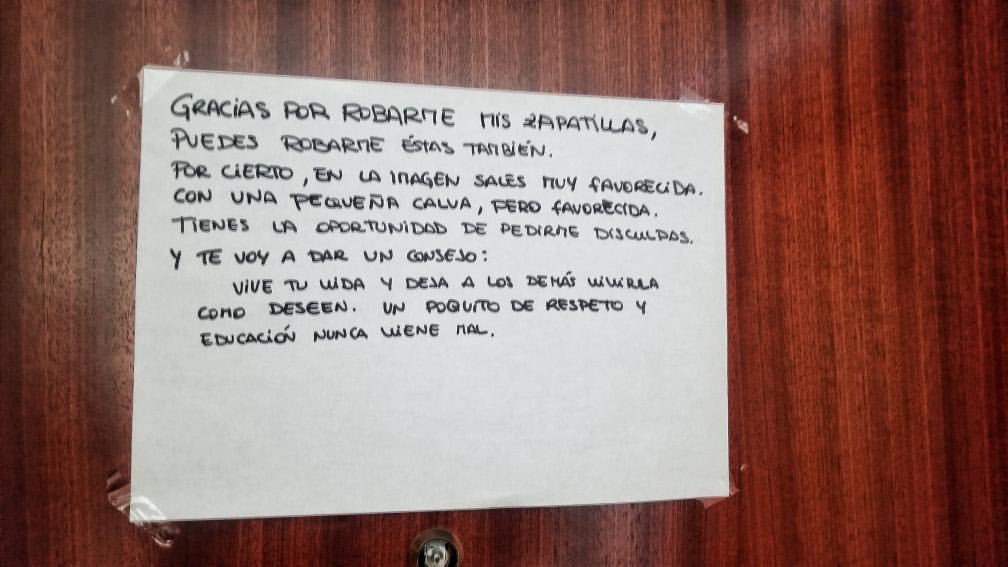 GRACIAS POR ROBARME MIS ZAPATILLAS,
PUEDES ROBARME ÉSTAS TAMBIÉN.
POR CIERTO, EN LA IMAGEN SALES MUY FAVORECIDA.
CON UNA PEQUEÑA CALVA, PERO FAVORECIDA.
TIENES LA OPORTUNIDAD DE PEDIRME DISCULPAS.
Y TE VOY A DAR UN CONSEJO:
VIVE TU VIDA Y DEJA A LOS DEMÁS VIVIRLA
COMO DESEEN. UN POQUITO DE RESPETO Y
EDUCACIÓN NUNCA VIENE MAL.